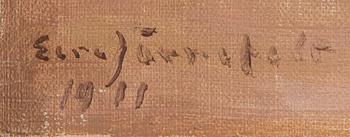 Eero Järnefelt
1911